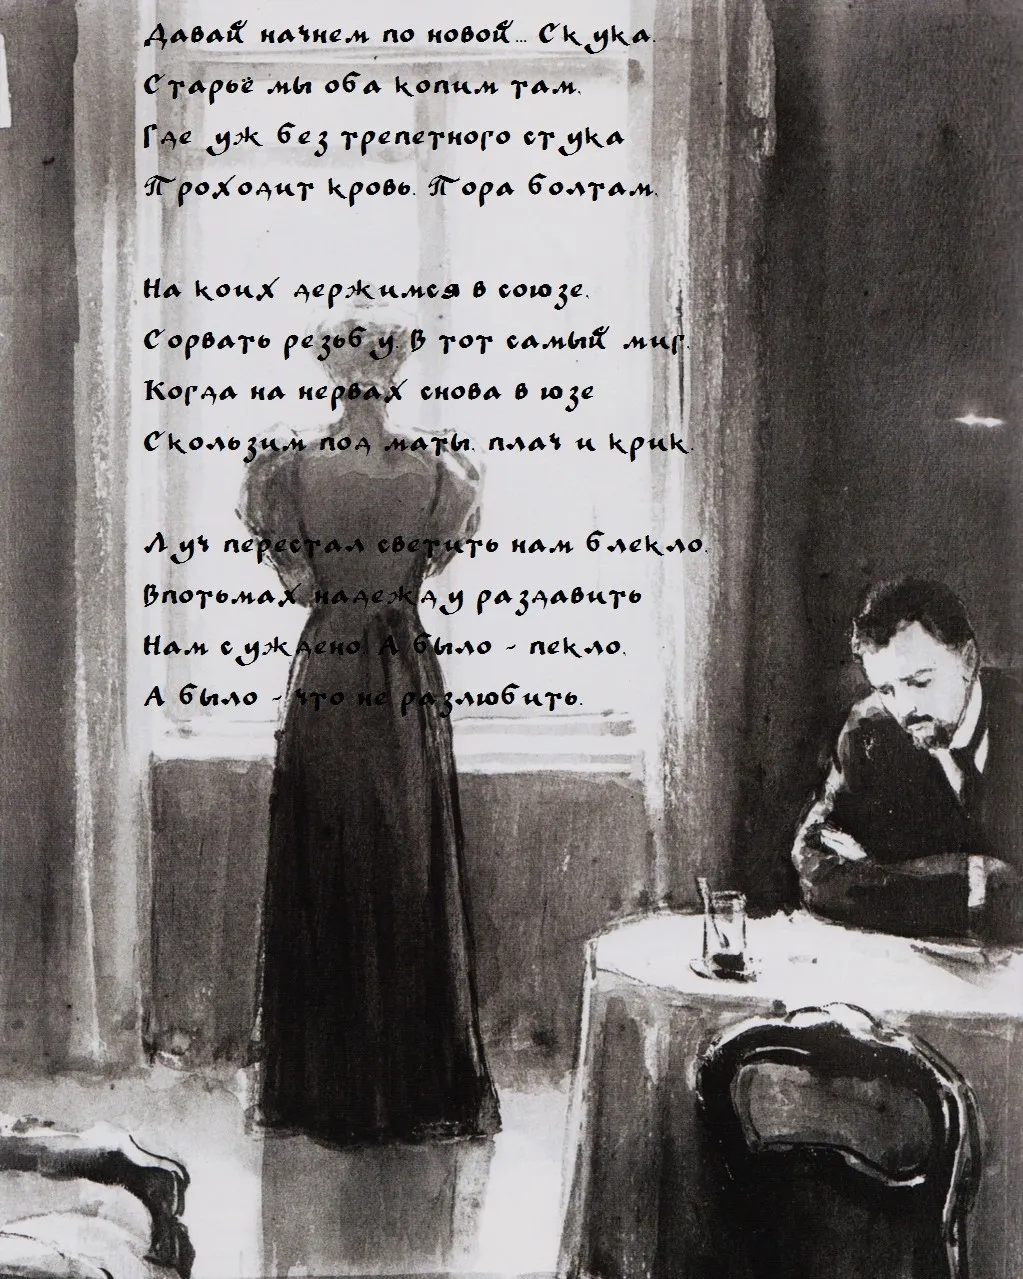 Давай начнем по новой... Скука.
Старьё мы оба копим там,
Где уж без трепетного стука
Проходит кровь. Пора болтам,
На коих держимся в союзе,
Сорвать резьбу. В тот самый миг,
Когда на нервах снова в юзе
Скользим под маты, плач и крик.
Луч перестал светить нам блекло.
Впотьмах надежду раздавить
Нам суждено! А было - пекло,
А было - что не разлюбить.